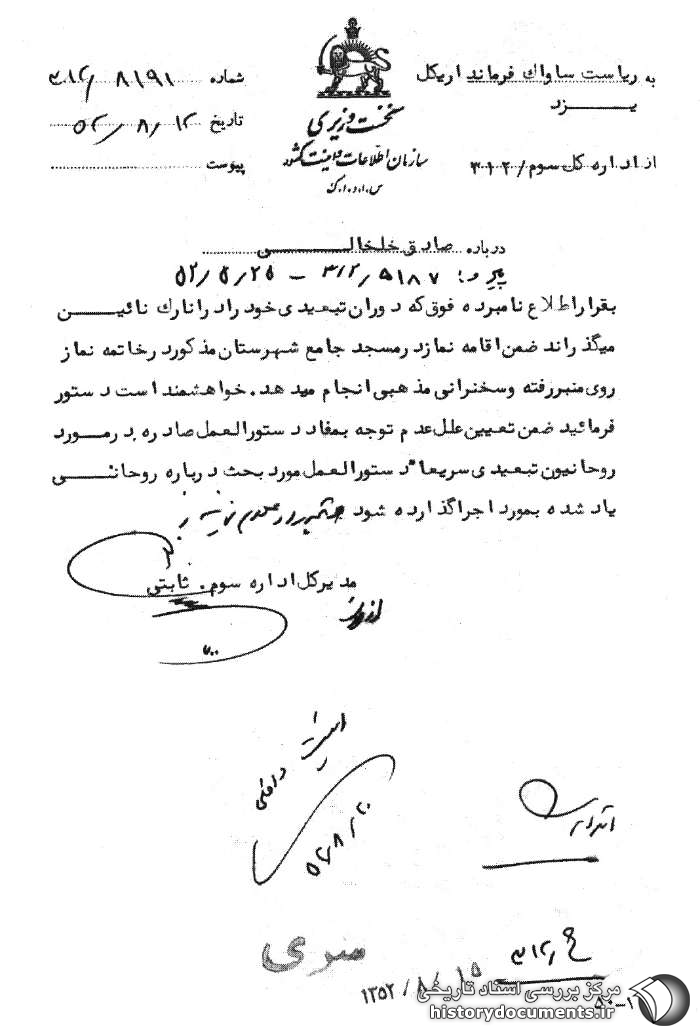 به ریاست ساواک فرماند اریکل
یزد
شماره ۳۱۲/ ۸۱۹۱
تاریخ ۵۲/ ۸/ ۱۲
از اداره کل سوم/ ۳۱۲
پیوست
نخست وزیری
سازمان اطلاعات و امنیت کشور
س.ا.و.ا.ک
درباره صادق خلخالی
پیرو: ۳۱۲/۵۱۸۷ –
بقرار اطلاع نامبرده فوق که دوران تبعیدی خود را در انارک نائین
میگذراند ضمن اقامه نماز در مسجد جامع شهرستان مذکور در خاتمه نماز
روی منبر رفته و سخنرانی مذهبی انجام میدهد. خواهشمند است دستور
فرمائید ضمن تعیین علل عدم توجه بمفاد دستورالعمل صادره در مورد
روحانیون تبعیدی سریعاً دستورالعمل مورد بحث درباره روحانی
یاد شده بمورد اجرا گذارده شود
مدیر کل اداره سوم. ثابتی
امنیت داخلی
۵۲/۸/۲۰
سری
۱۳۵۲ / ۸/ ۱۵
۳۱۲
مرکز بررسی اسناد تاریخی
historydocuments.ir